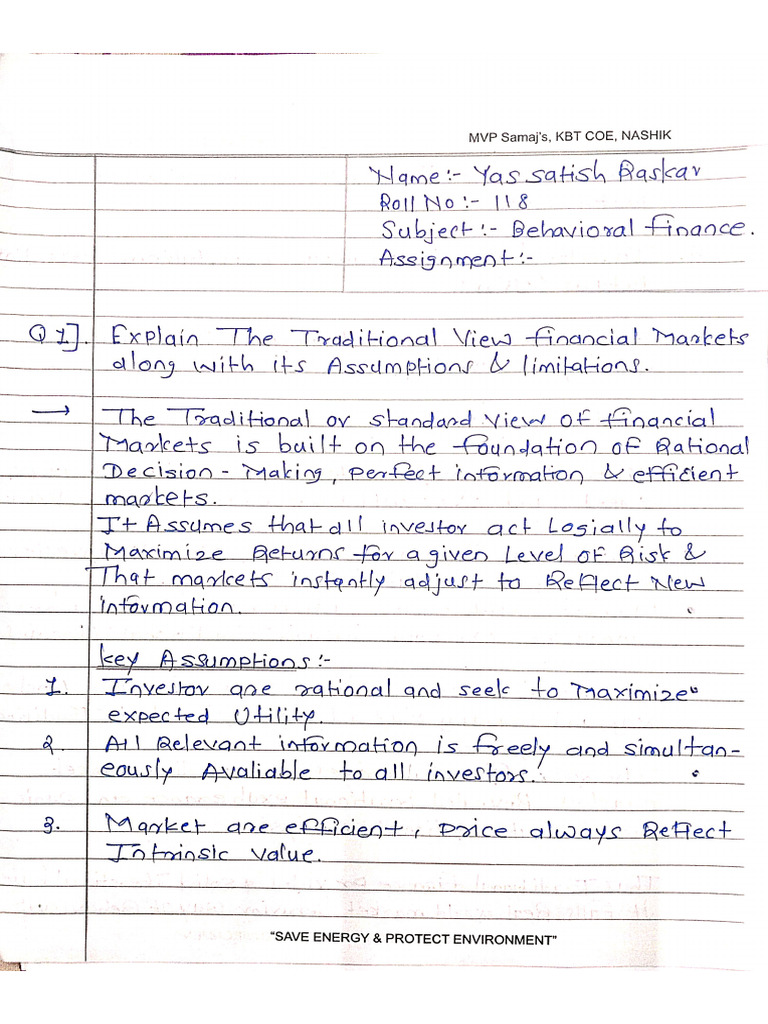 MVP Samaj's, KBT COE, NASHIK
Name:- Yas satish Raskar
Roll No:- 118
Subject:- Behavioral finance.
Assignment:-
Q 1]. Explain The Traditional View financial Markets
along with its Assumptions & limitations.
→ The Traditional or standard view of financial
Markets is built on the foundation of Rational
Decision - Making, perfect information & efficient
markets.
It Assumes that all investor act Logially to
Maximize Returns for a given Level of Risk &
That markets instantly adjust to Reflect New
information.
key Assumptions:-
1. Investor are rational and seek to Maximize
expected Utility.
2. All Relevant information is freely and simultan-
eously Avaliable to all investors.
3. Market are efficient, price always Reflect
Intrinsic value.
"SAVE ENERGY & PROTECT ENVIRONMENT"